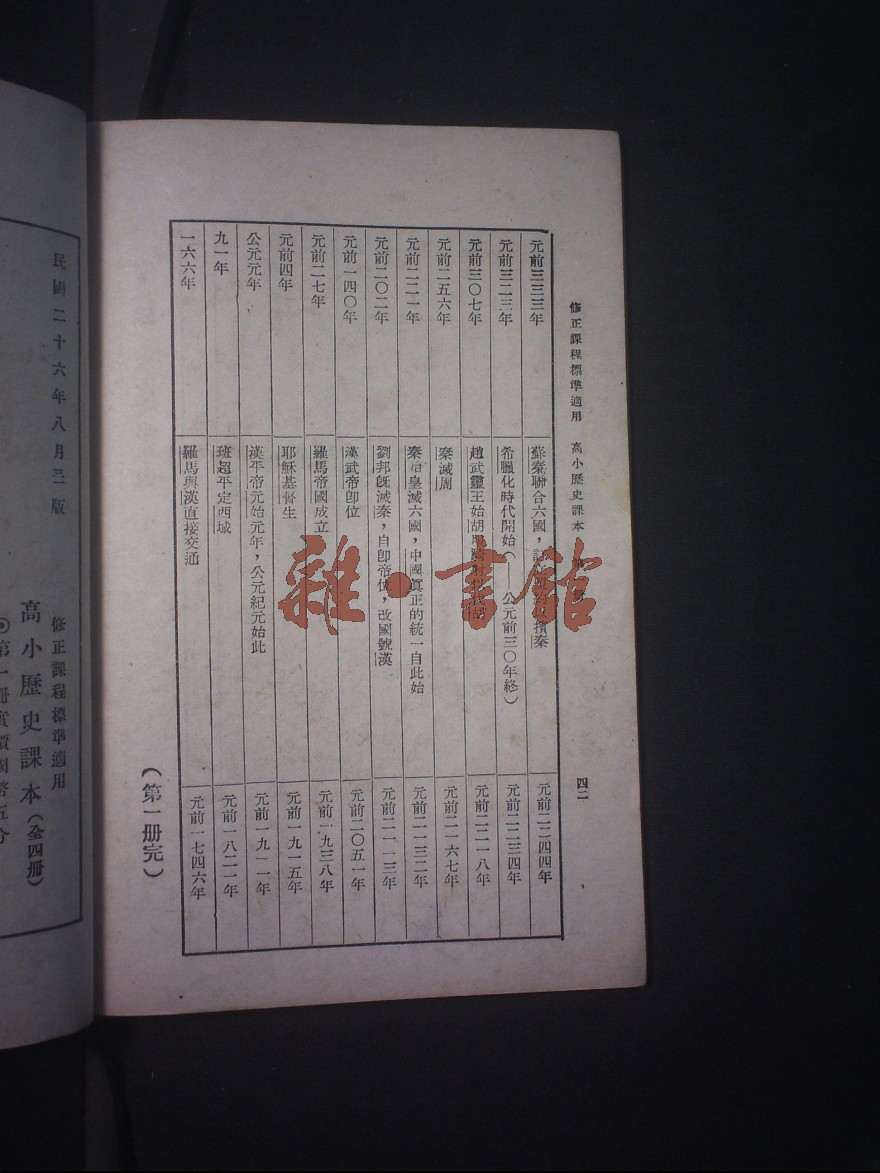 修正課程標準適用 高小歷史課本 四二
元前三三三年 蘇秦聯合六國，擯秦 元前二二四四年
元前三二三年 希臘化時代開始（——公元前三〇年終） 元前二二三四年
元前三〇七年 趙武靈王始胡服騎射以伐胡 元前二二一八年
元前二五六年 秦滅周 元前二一六七年
元前二二一年 秦始皇滅六國，中國眞正的統一自此始 元前二一三二年
元前二〇二年 劉邦旣滅秦，自卽帝位，改國號漢 元前二一一三年
元前一四〇年 漢武帝卽位 元前二〇五一年
元前二七年 羅馬帝國成立 元前一九三八年
元前四年 耶穌基督生 元前一九一五年
公元元年 漢平帝元始元年，公元紀元始此 元前一九一一年
九一年 班超平定西域 元前一八二一年
一六六年 羅馬與漢直接交通 元前一七四六年
（第一册完）
民國二十六年八月三版
修正課程標準適用
高小歷史課本（全四册）
第一册實價國幣五分
雜·書館